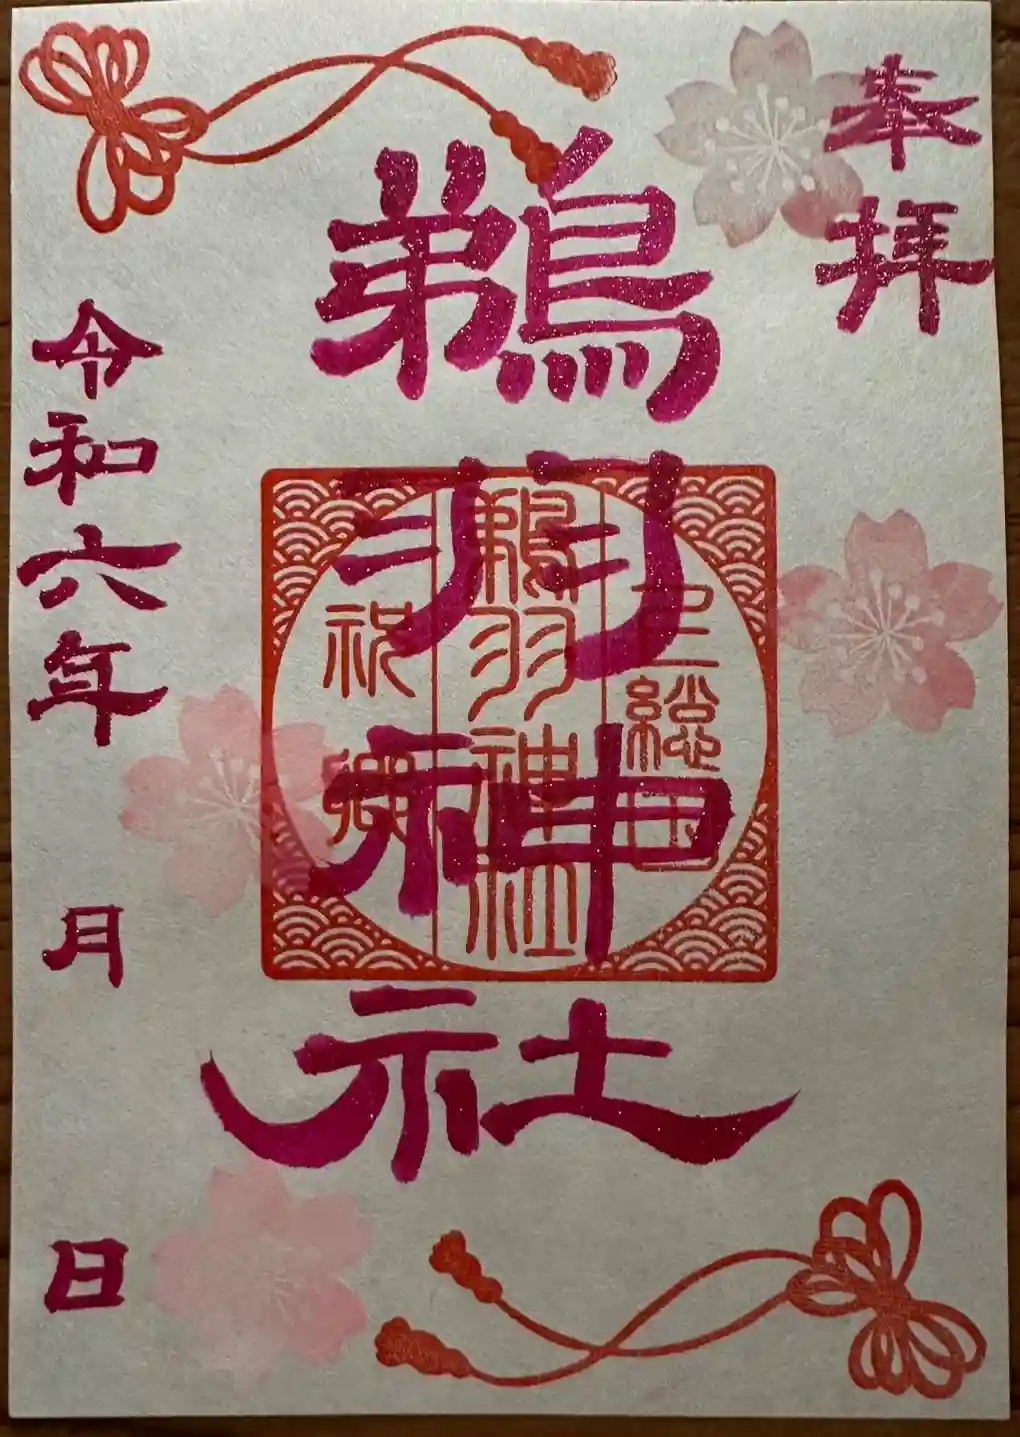 奉拝
鵜羽神社
上総国
鵜羽神社
祝郷
令和六年 月 日